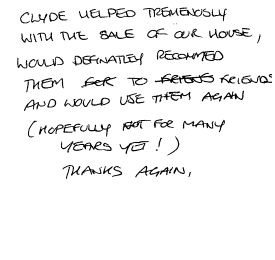 CLYDE HELPED TREMENOSLY
WITH THE SALE OF OUR HOUSE,
WOULD DEFINATLEY RECOMMED
THEM FOR TO FRIENS FRIENDS
AND WOULD USE THEM AGAIN
(HOPEFULLY NOT FOR MANY
YEARS YET!)
THANKS AGAIN,